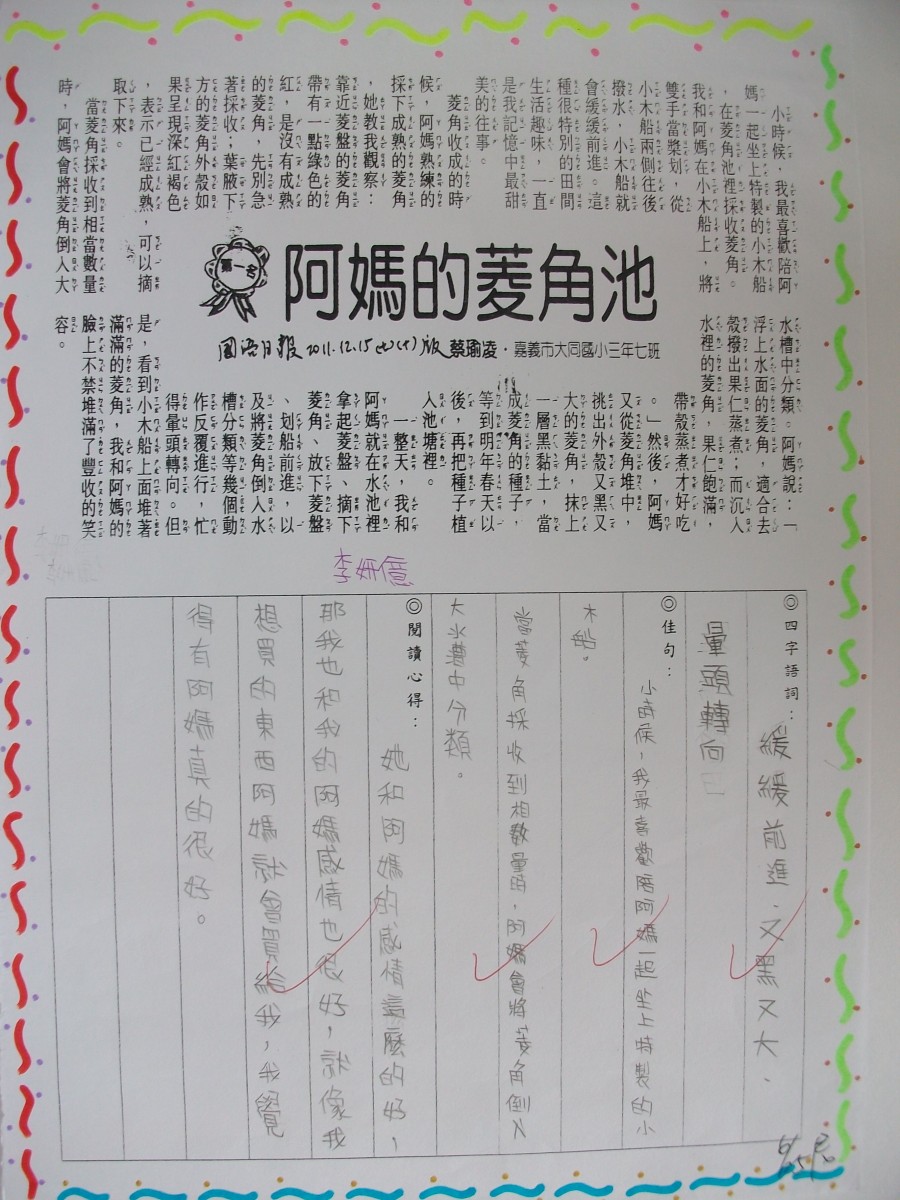 阿媽的菱角池
第一名
國語日報 2011.12.15(七)版 蔡瑜凌・嘉義市大同國小三年七班
小時候，我最喜歡陪阿
媽一起坐上特製的小木船
，在菱角池裡採收菱角。
我和阿媽在小木船上，將
雙手當槳划，從
小木船兩側往後
撥水，小木船就
會緩緩前進。這
種很特別的田間
生活趣味，一直
是我記憶中最甜
美的往事。
菱角收成的時
候，阿媽熟練的
採下成熟的菱角
，她教我觀察：
靠近菱盤的菱角
帶有一點綠色的
紅，是沒有成熟
的菱角，先別急
著採收；葉腋下
方的菱角外殼如
果呈現深紅褐色
，表示已經成熟，可以摘
取下來。
當菱角採收到相當數量
時，阿媽會將菱角倒入大
水槽中分類。阿媽說：「
浮上水面的菱角，適合去
殼撥出果仁蒸煮；而沉入
水裡的菱角，果仁飽滿，
帶殼蒸煮才好吃
。」然後，阿媽
又從菱角堆中，
挑出外殼又黑又
大的菱角，抹上
一層黑黏土，當
成菱角的種子，
等到明年春天以
後，再把種子植
入池塘裡。
一整天，我和
阿媽就在水池裡
拿起菱盤、摘下
菱角、放下菱盤
、划船前進，以
及將菱角倒入水
槽分類等幾個動
作反覆進行，忙
得暈頭轉向。但
是，看到小木船上面堆著
滿滿的菱角，我和阿媽的
臉上不禁堆滿了豐收的笑
容。
李妍億
◎四字語詞：緩緩前進．又黑又大．
暈頭轉向
◎佳句：小時候，我最喜歡陪阿媽一起坐上特製的小
木船。
當菱角採收到相數量時，阿媽會將菱角倒入
大水漕中分類。
◎閱讀心得：她和阿媽的感情這麼的好，
那我也和我的阿媽感情也很好，就像我
想買的東西阿媽就會買給我，我覺
得有阿媽真的很好。